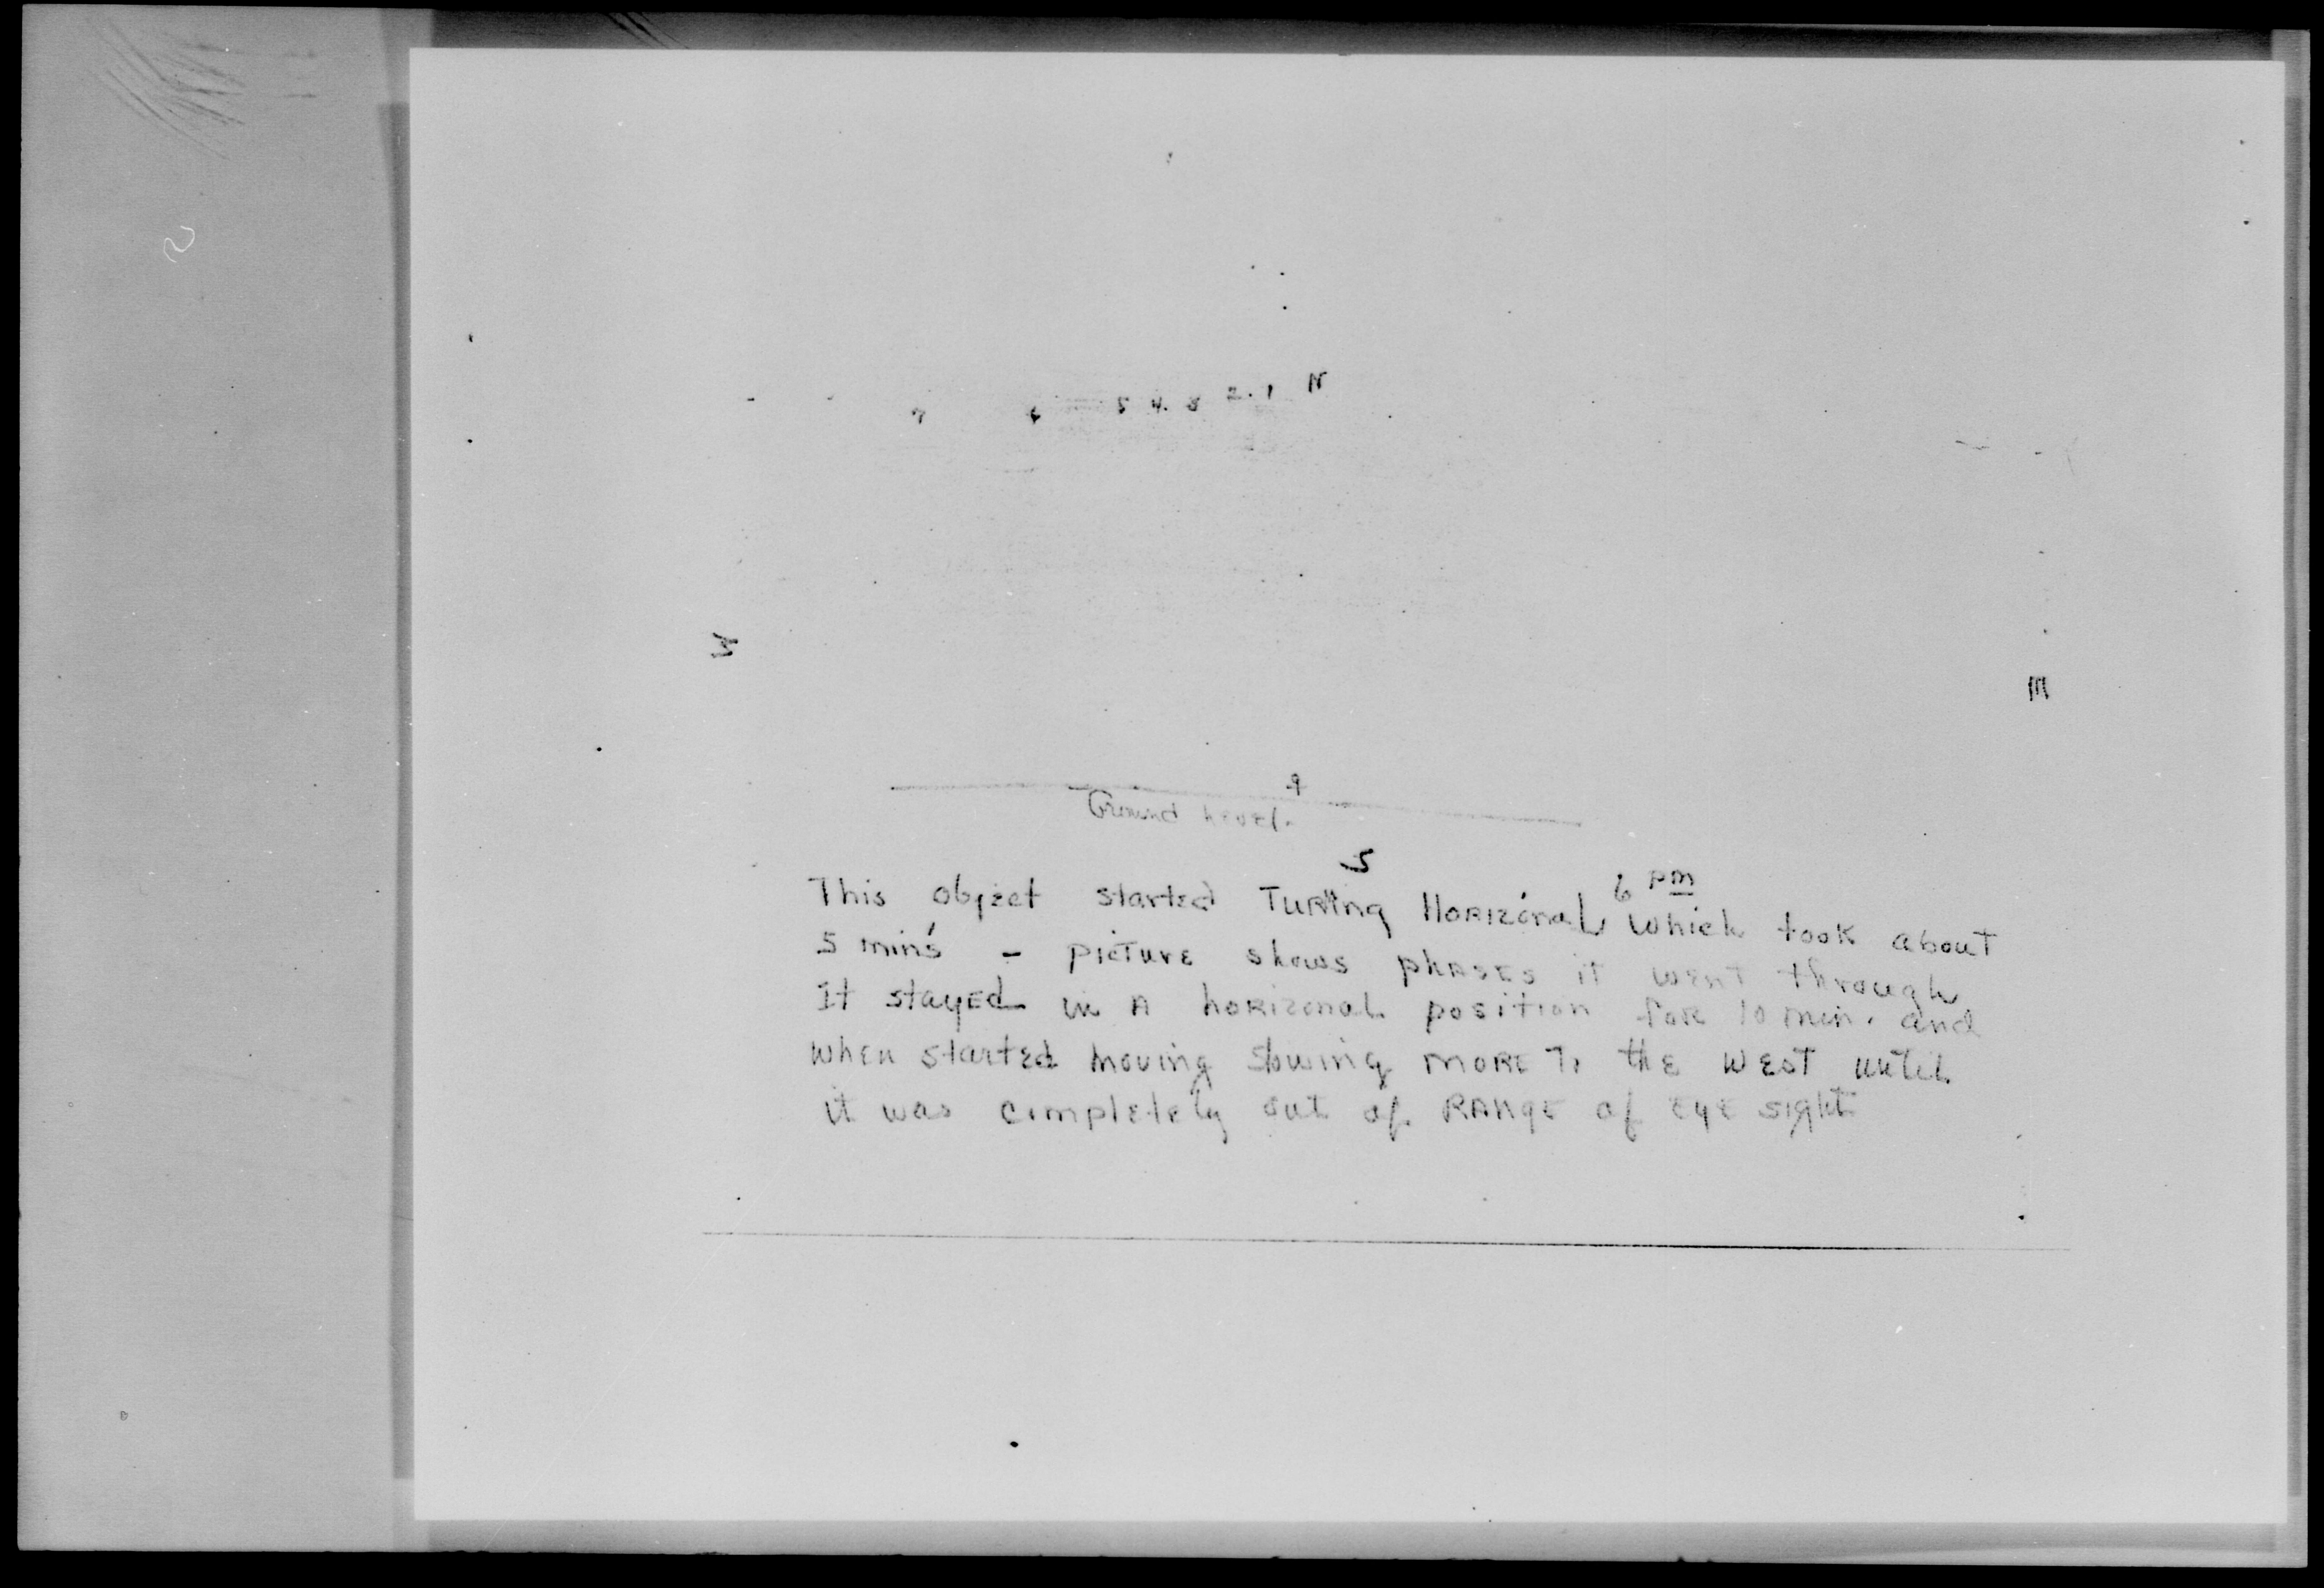 N
7 6 5 4. 3 2. 1
W
E
Ground Level.
S
This object started Turing Horizonal 6 pm which took about
5 min's - picture shows phases it went through
It stayed in a horizonal position for 10 min. and
when started moving slowing more To the West until
it was completely out of Range of eye sight